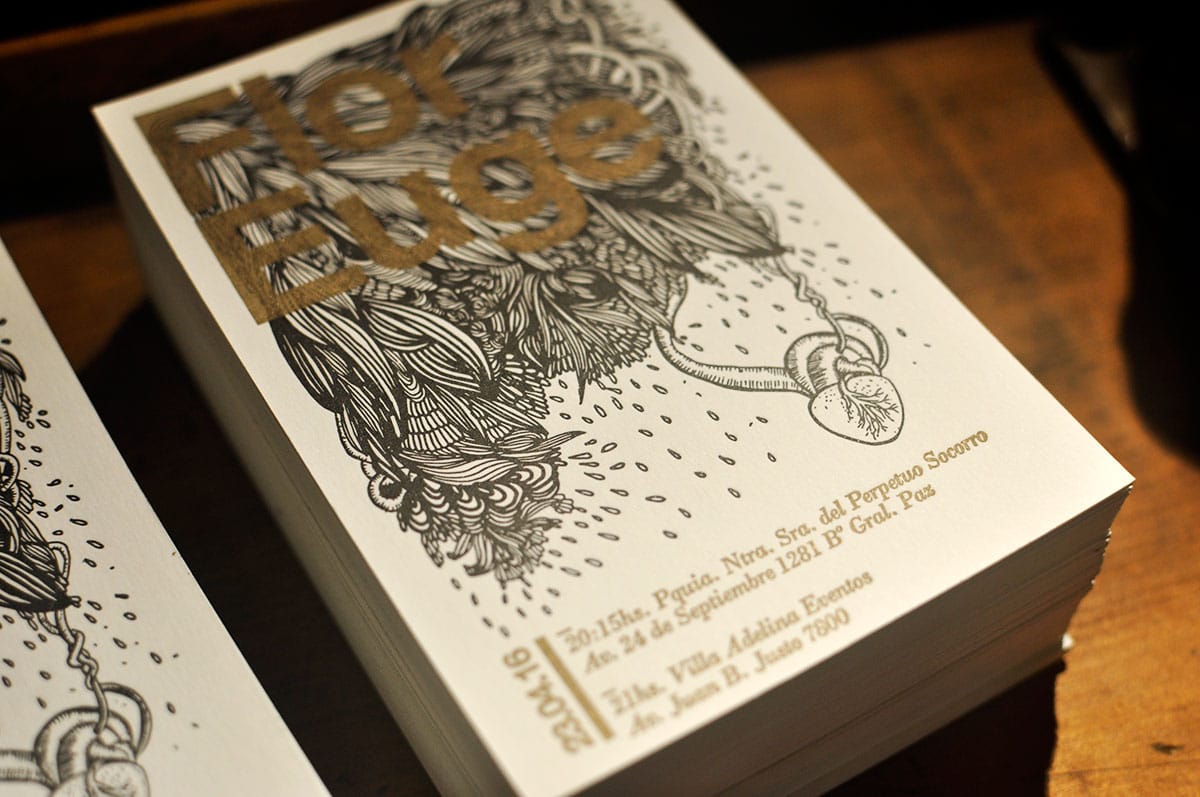 Flor
Euge
23.04.16
20:15hs. Pquia. Ntra. Sra. del Perpetuo Socorro
Av. 24 de Septiembre 1281 Bº Gral. Paz
21hs. Villa Adelina Eventos
Av. Juan B. Justo 7800